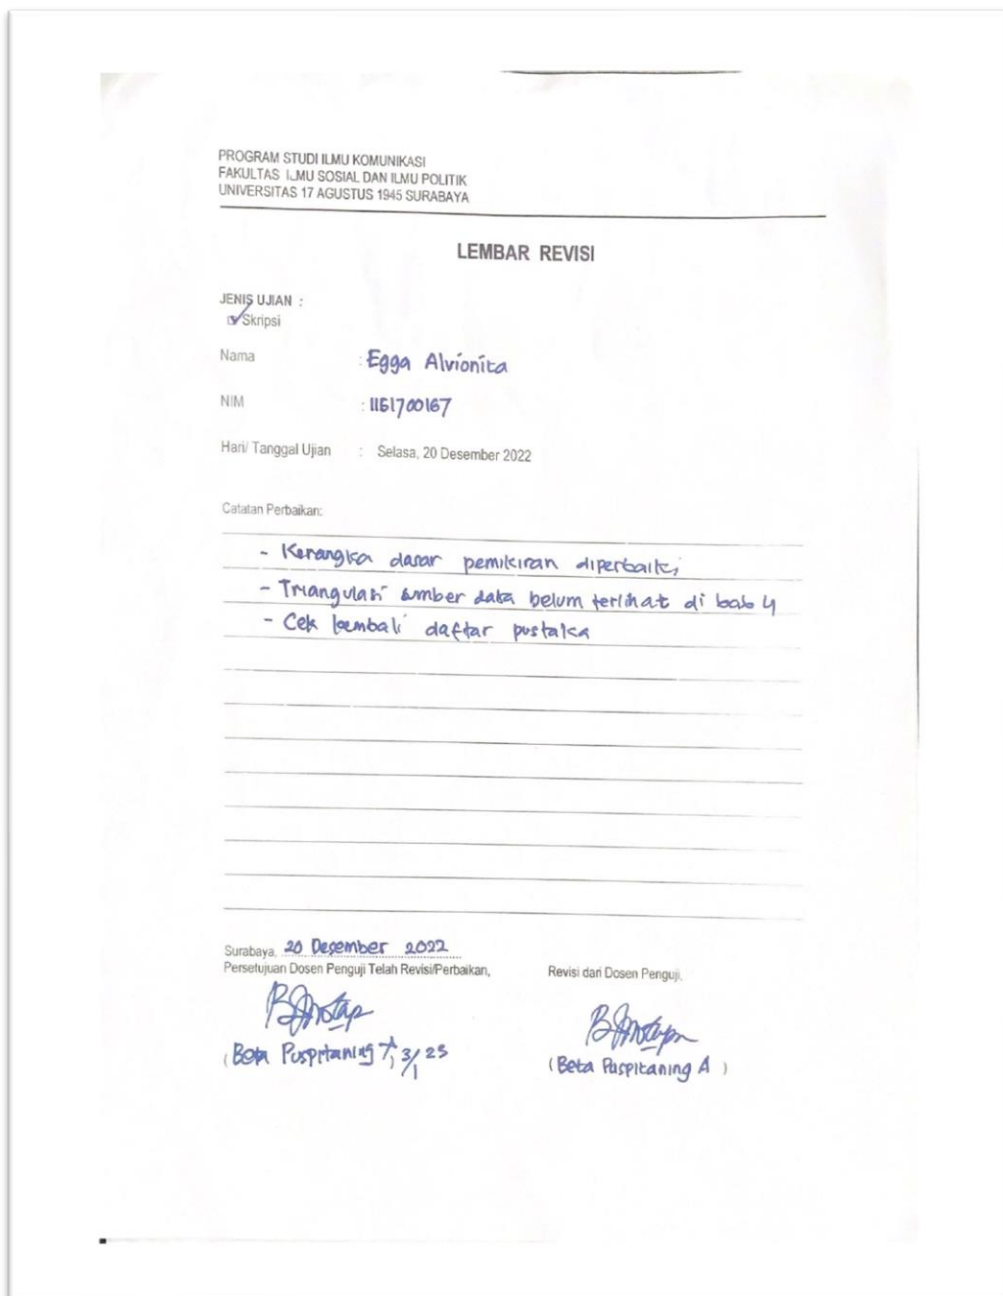 PROGRAM STUDI ILMU KOMUNIKASI
FAKULTAS ILMU SOSIAL DAN ILMU POLITIK
UNIVERSITAS 17 AGUSTUS 1945 SURABAYA
LEMBAR REVISI
JENIS UJIAN :
Skripsi
Nama : Egga Alvionita
NIM : 1151700167
Hari/ Tanggal Ujian : Selasa, 20 Desember 2022
Catatan Perbaikan:
- Kerangka dasar pemikiran diperbaiki
- Triangulasi sumber data belum terlihat di bab 4
- Cek kembali daftar pustaka
Surabaya, 20 Desember 2022
Persetujuan Dosen Penguji Telah Revisi/Perbaikan, Revisi dari Dosen Penguji,
(Beta Puspitaning 3/1 23 (Beta Puspitaning A )